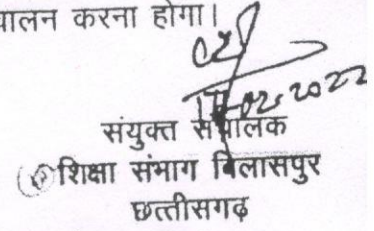 पालन करना होगा।
02-2022
संयुक्त संचालक
शिक्षा संभाग बिलासपुर
छत्तीसगढ़